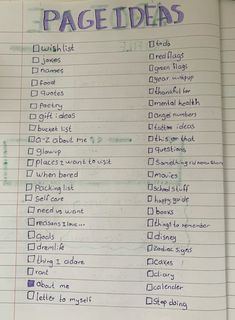 PAGE IDEAS
wish list
jokes
names
food
quotes
poetry
gift ideas
bucket list
a-z about me
glowup
places I want to visit
when bored
Packing list
Self care
need vs want
reasons I love...
Goals
dream life
thing I adore
rant
about me
letter to myself
to do
red flags
green flags
year wrap up
thankful for
mental health
angel numbers
tattoo ideas
this or that
questions
Something
movies
school stuff
happy guide
books
things to remember
disney
Zodiac signs
cakes
diary
calender
Stop doing